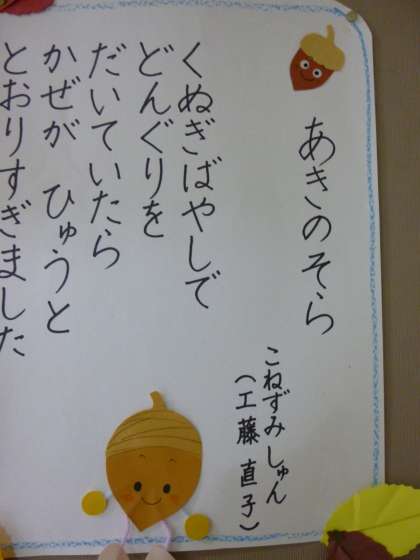 あきのそら
こねずみしゅん
(工藤直子)
くぬぎばやしで
どんぐりを
だいていたら
かぜが ひゅうと
とおりすぎました